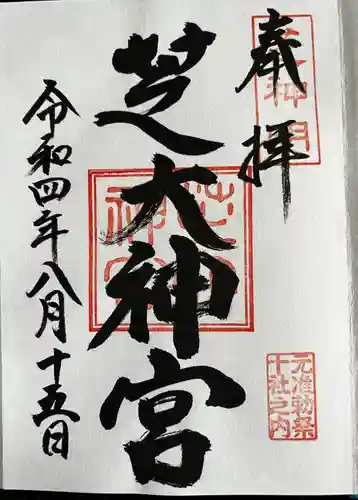 奉拝
芝大神宮
令和四年八月十五日
元准勅祭
十社之内